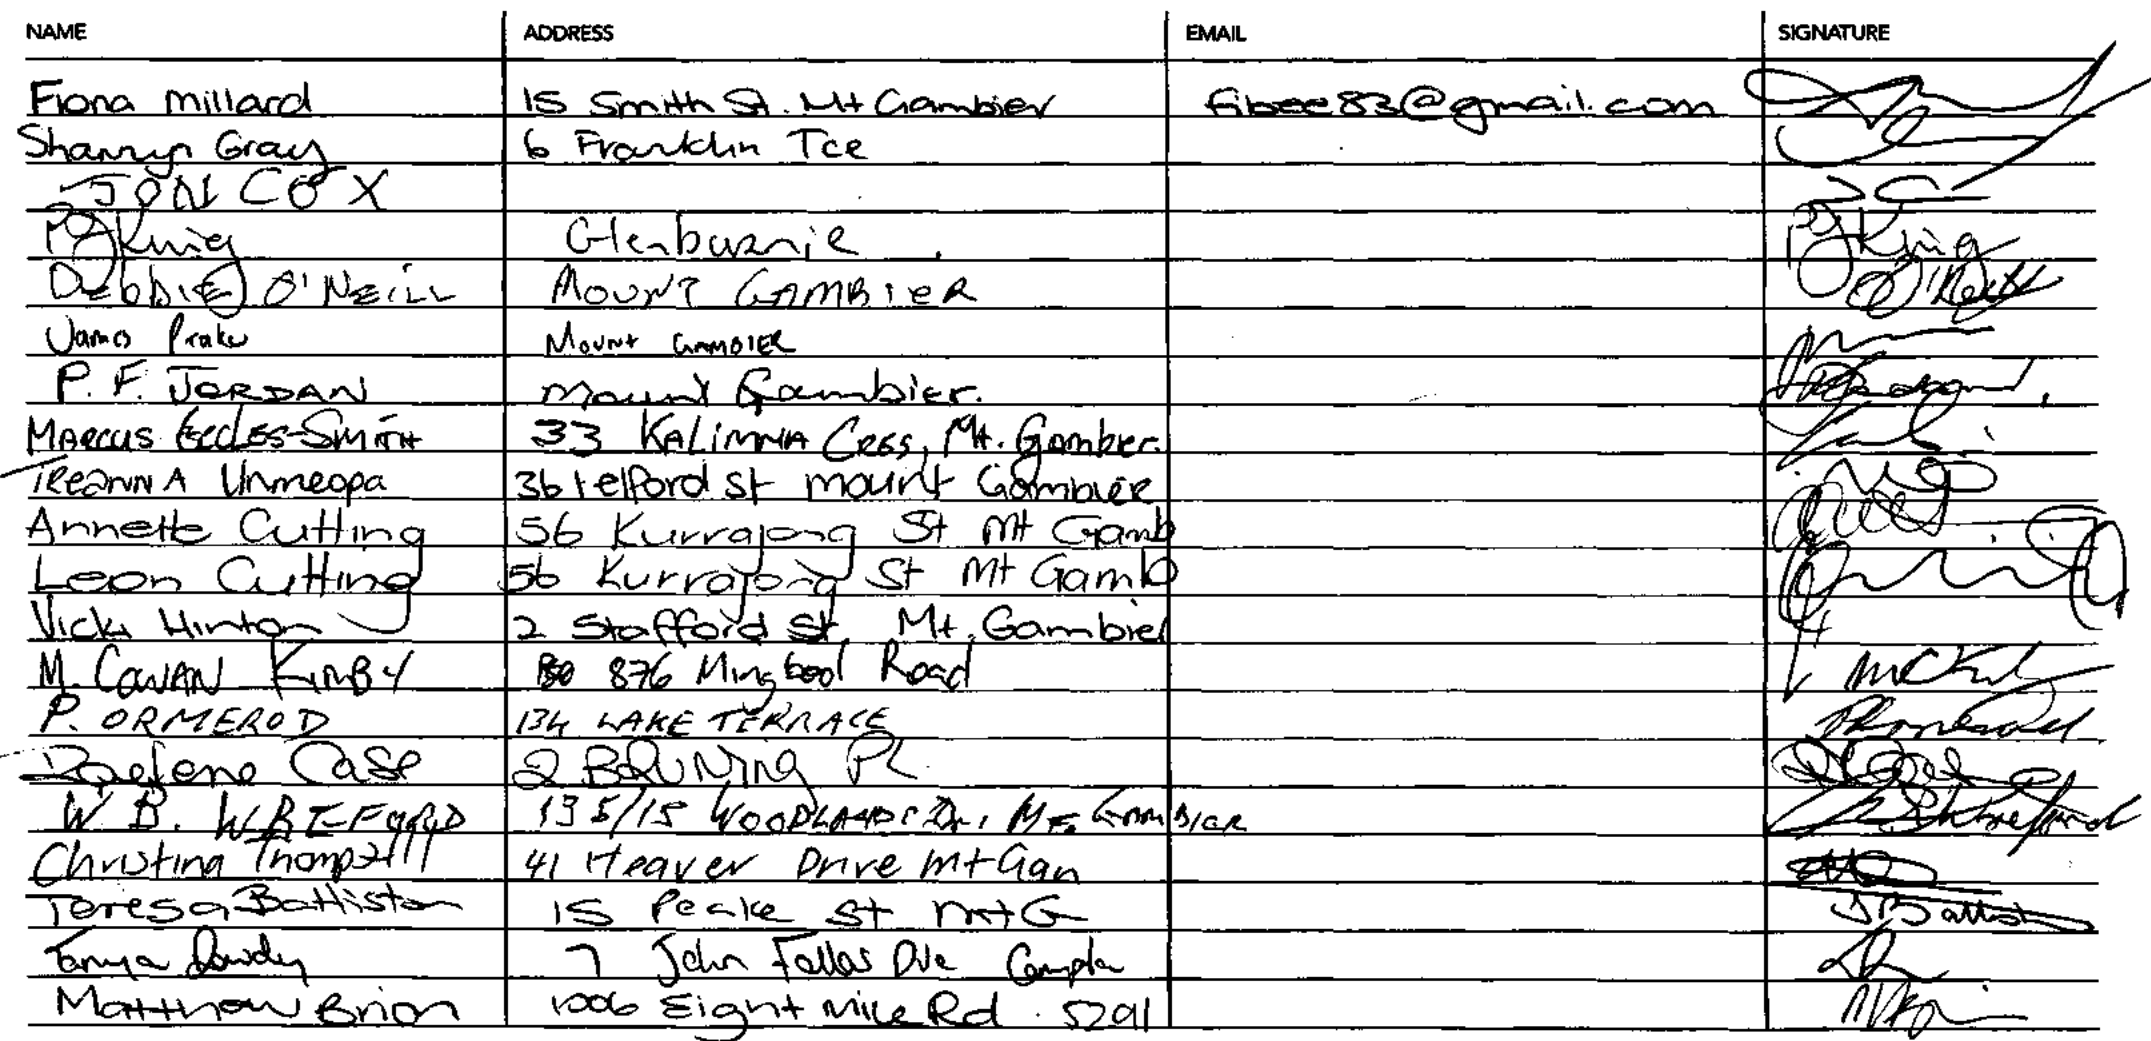 NAME ADDRESS EMAIL SIGNATURE
Fiona Millard 15 Smith St. Mt Gambier fibee83@gmail.com
Sharryn Gray 6 Franklin Tce
JON COX
PJ King Glenburnie PJ King
DEBBIE O'NEILL MOUNT GAMBIER O'Neill
James MOUNT GAMBIER
P. F. JORDAN Mount Gambier.
MARCUS ECCLES-SMITH 33 KALIMNA CRES, Mt. Gambier.
Unmeopa 36 telford st mount Gambier
Annette Cutting 56 Kurrajong St Mt Gamb
Leon Cutting 56 Kurrajong St Mt Gamb
Vicki Hinton 2 Stafford St, Mt. Gambier
M. COWAN KIRBY 876 Mingbool Road
P. ORMEROD 134 LAKE TERRACE
Case 2 Pl
W. B. WREFORD 135/15 WOODLANDS DR, MT. GAMBIER
Christina 41 Heaver Drive Mt Gam
Teresa Battiston 15 Peake St Mt G
Tanya 7 John Follas Dve
Matthew Brion 1006 Eight Mile Rd. 5291